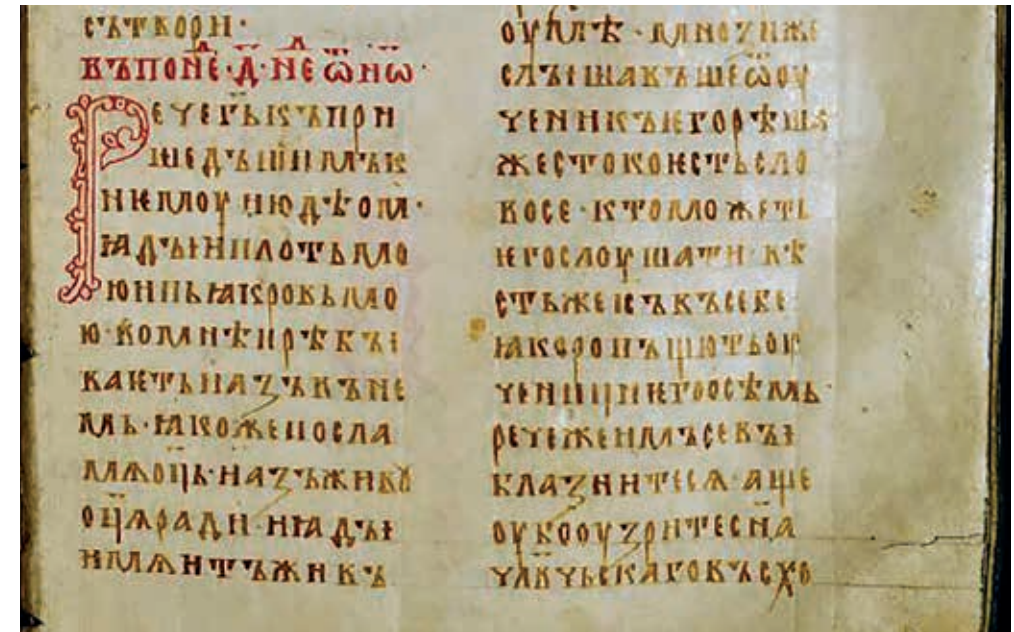 сътвори·
въ понеⷣ·д҃·неⷣ ѿ иѡ·
Рече г҃ь къ при
шедъшіимъ к
нѥмоу июдѣом·
ꙗдъіи плоть мо
ю и пьꙗ кровь мо
ю· во мнѣ прѣбъі
ваѥть и азъ въ не
мь· ꙗкоже посла
мѧ оц҃ь· и азъ живꙋ
оц҃ѧ ради· и ꙗдъі
и мѧ и тъ живъ
оу мѣ· мнози же
слъішавъше ѿ оу
ченикъ ѥго рѣша
жестоко ѥсть сло
во се· кто можеть
ѥго слоушати· вѣ
сть же іс҃ъ въ себе
ꙗко ропъщють оу
ченици ѥго о сѣмь·
рече же имъ се въі
блазнить сѧ· аще
оубо оузрите сн҃а
чл҃вчьскаго въсхо